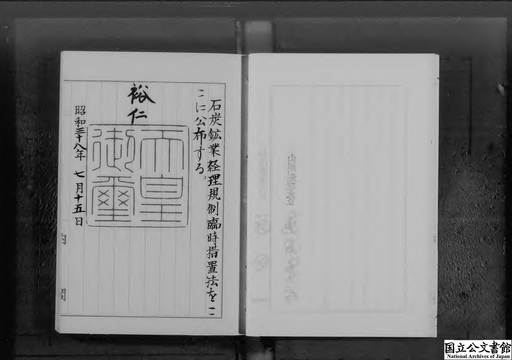 石炭鉱業経理規制臨時措置法をこ
こに公布する。
裕仁
天皇
御璽
昭和三十八年 七月十五日
国立公文書館
National Archives of Japan